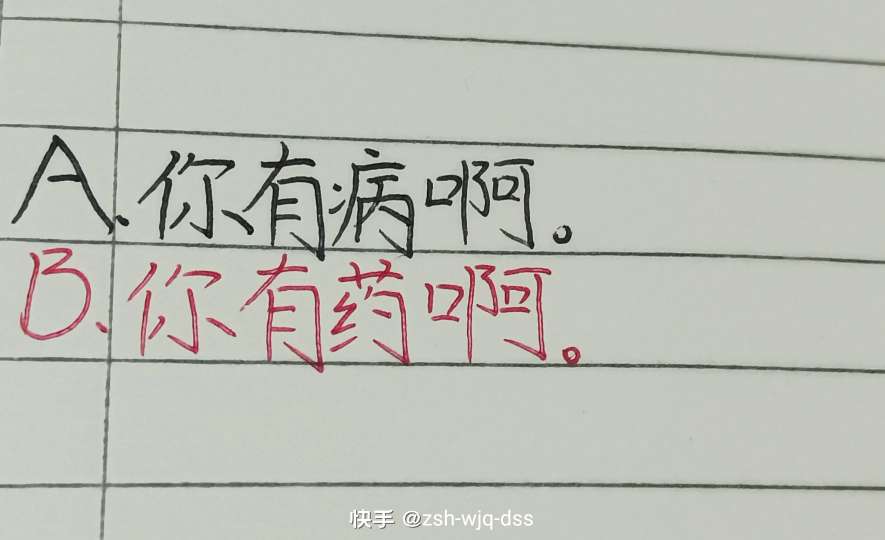 A.你有病啊。
B.你有药啊。
快手 @zsh-wjq-dss